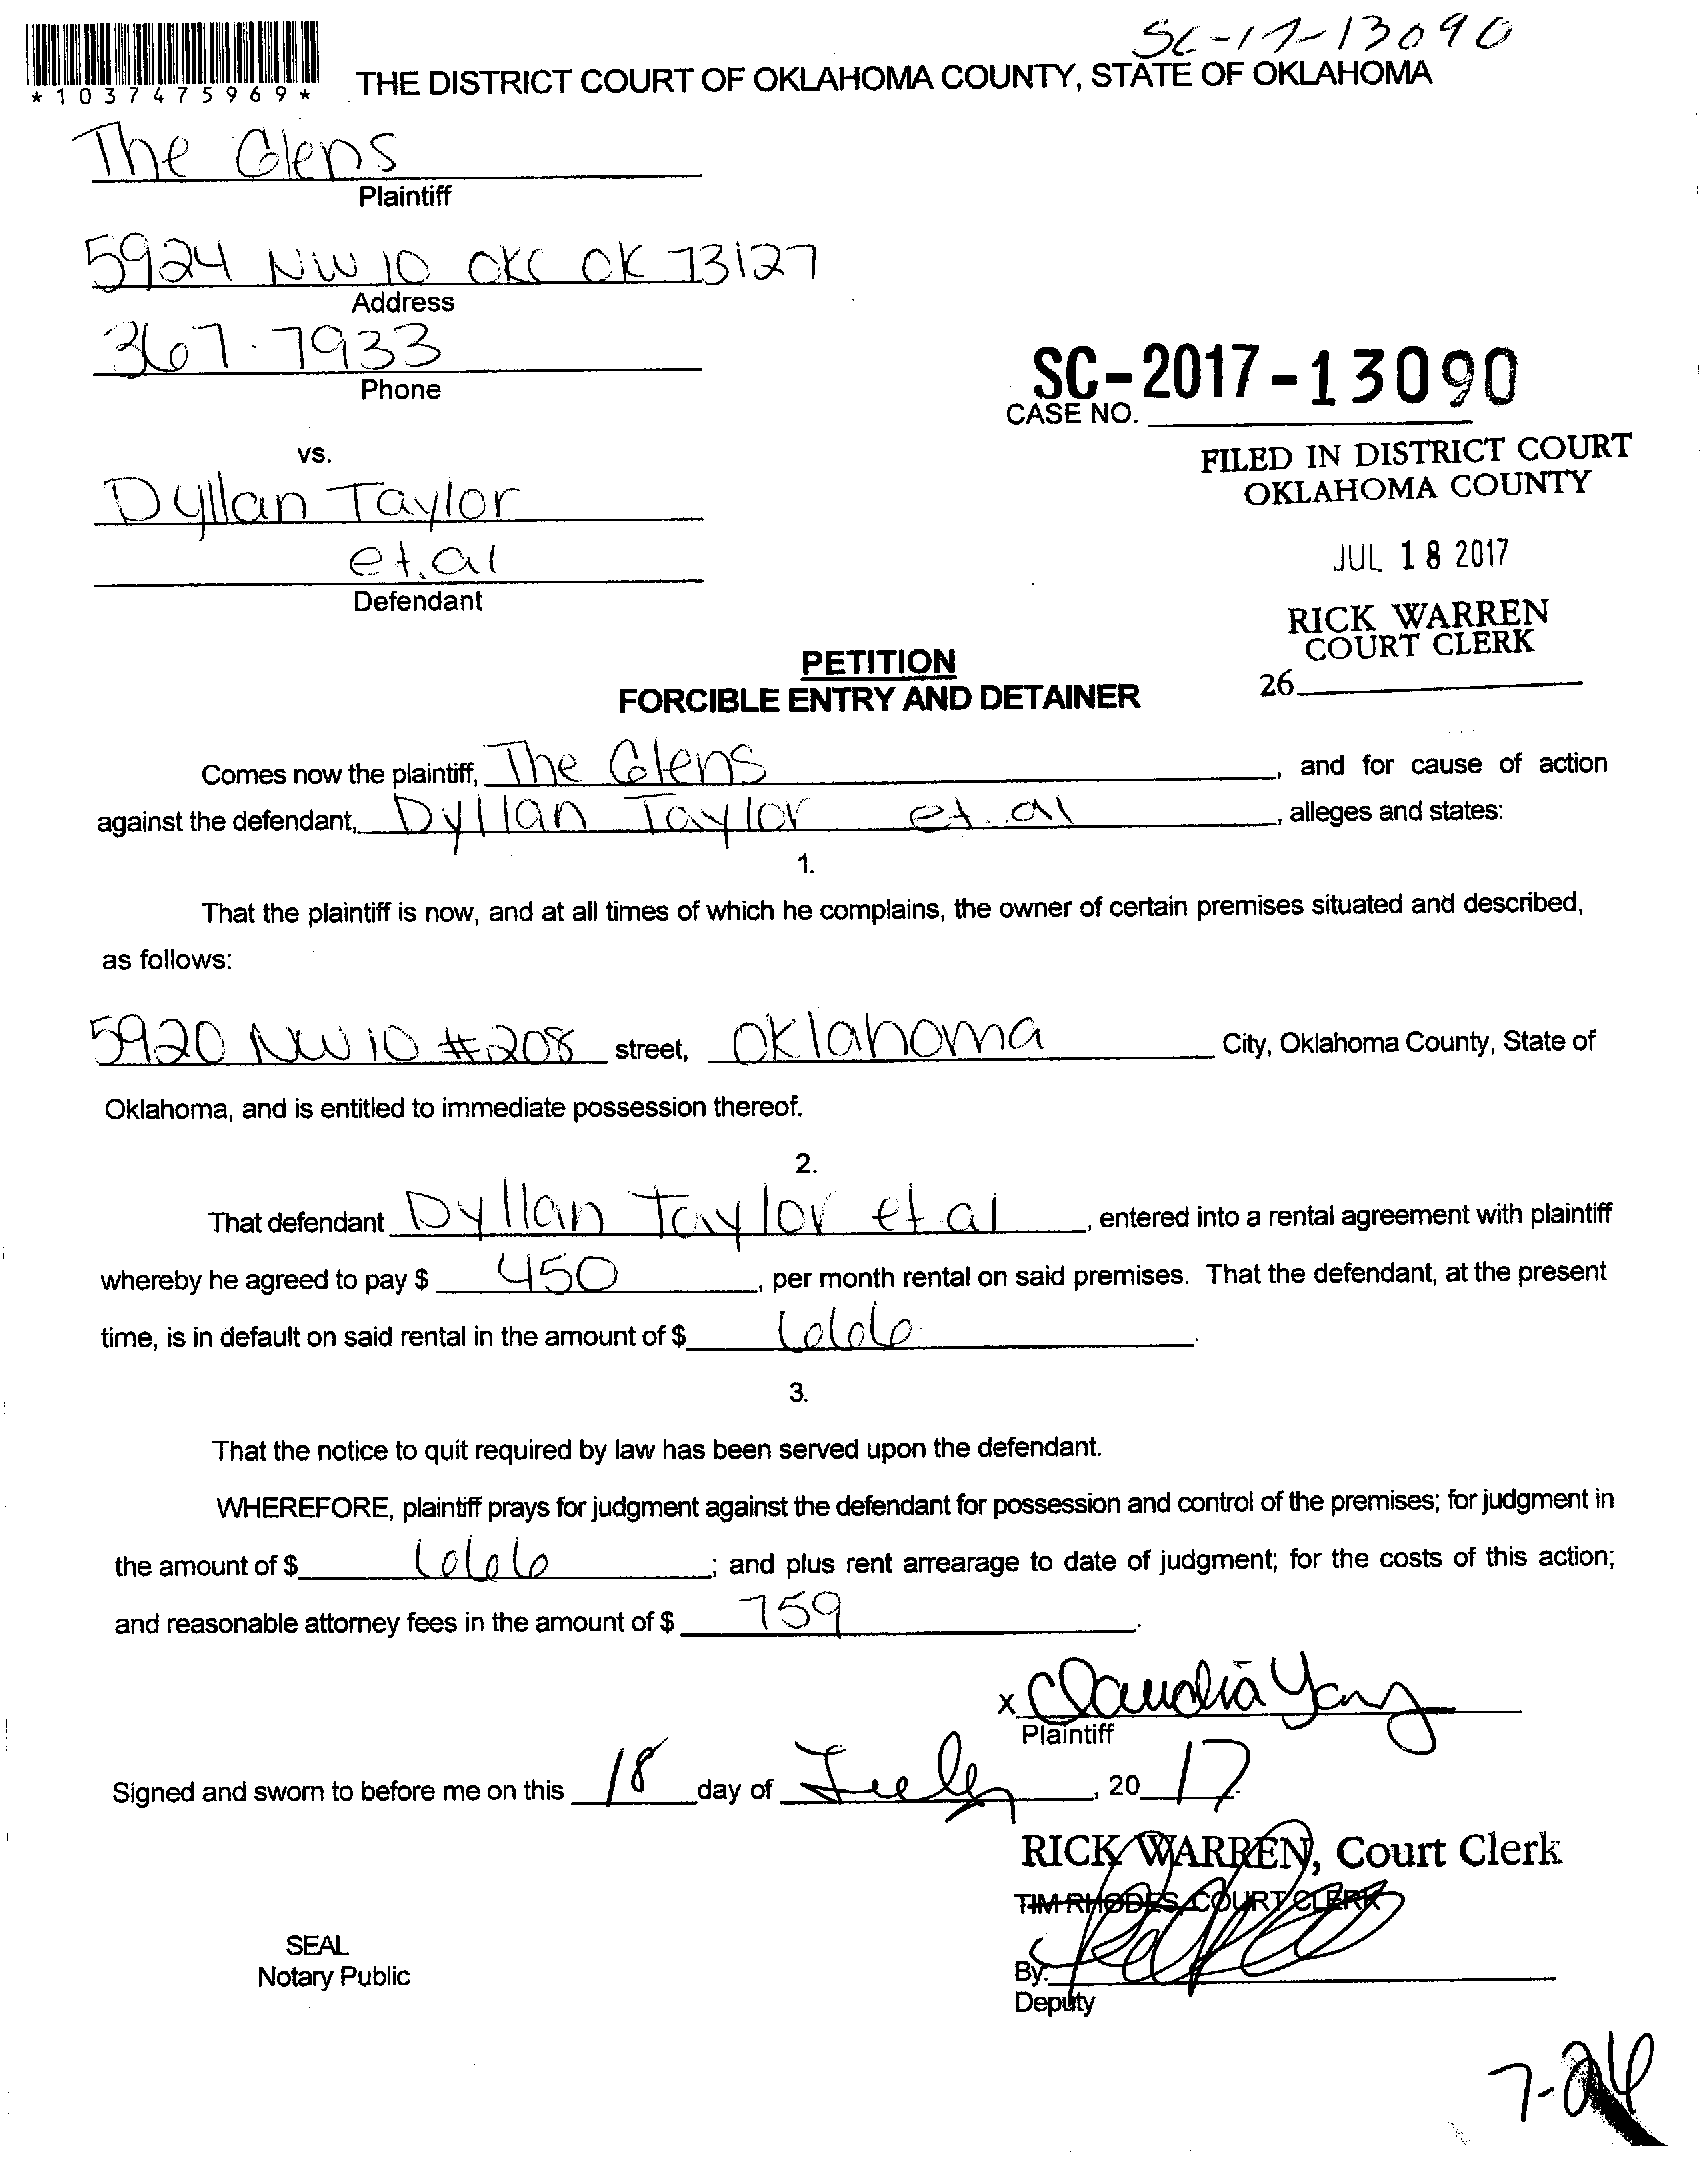 SC-17-13090
*1037475969*
THE DISTRICT COURT OF OKLAHOMA COUNTY, STATE OF OKLAHOMA
The Glens
Plaintiff
5924 NW 10 OKC OK 73127
Address
367-7933
Phone
SC-2017-13090
CASE NO.
vs.
FILED IN DISTRICT COURT
OKLAHOMA COUNTY
Dyllan Taylor
et.al
Defendant
JUL 18 2017
RICK WARREN
COURT CLERK
26
PETITION
FORCIBLE ENTRY AND DETAINER
Comes now the plaintiff, The Glens, and for cause of action
against the defendant, Dyllan Taylor et.al, alleges and states:
1.
That the plaintiff is now, and at all times of which he complains, the owner of certain premises situated and described,
as follows:
5920 NW 10 #208 street, Oklahoma City, Oklahoma County, State of
Oklahoma, and is entitled to immediate possession thereof.
2.
That defendant Dyllan Taylor et al, entered into a rental agreement with plaintiff
whereby he agreed to pay $ 450, per month rental on said premises. That the defendant, at the present
time, is in default on said rental in the amount of $ 666.
3.
That the notice to quit required by law has been served upon the defendant.
WHEREFORE, plaintiff prays for judgment against the defendant for possession and control of the premises; for judgment in
the amount of $ 666; and plus rent arrearage to date of judgment; for the costs of this action;
and reasonable attorney fees in the amount of $ 759.
x Claudia Yang
Plaintiff
Signed and sworn to before me on this 18 day of July, 20 17
RICK WARREN, Court Clerk
TIM RHODES, COURT CLERK
SEAL
Notary Public
By:
Deputy
7-24